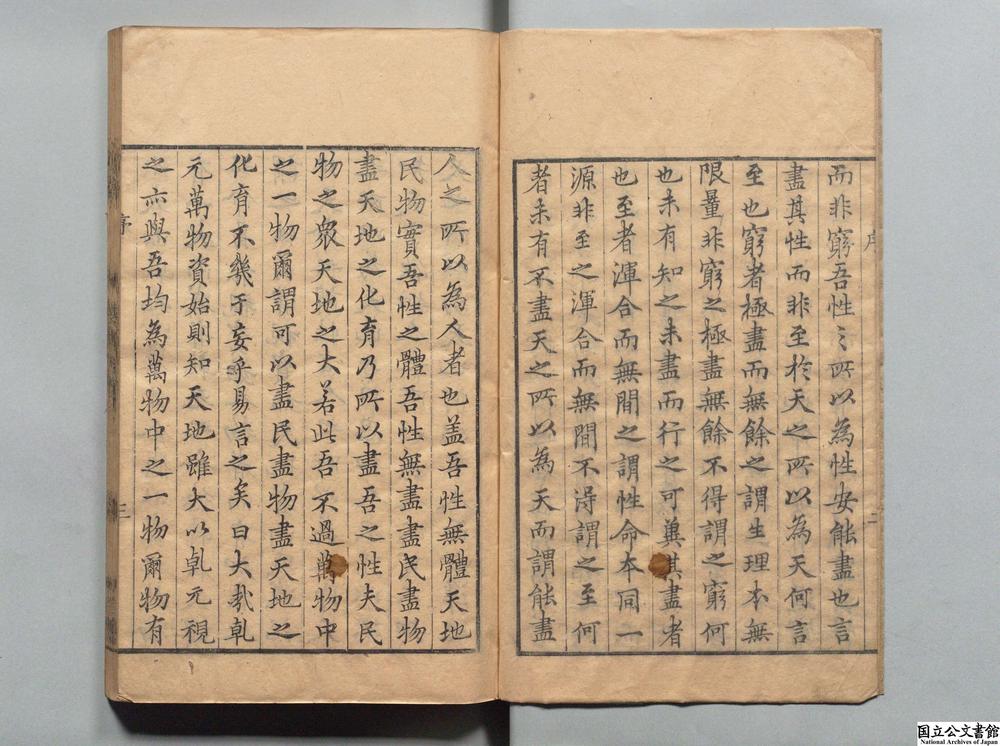 序
二
而非窮吾性〻所以為性安能盡也言
盡其性而非至於天之所以為天何言
至也窮者極盡而無餘之謂生理本無
限量非窮之極盡無餘不得謂之窮何
也未有知之未盡而行之可兾其盡者
也至者渾合而無間之謂性命本同一
源非至之渾合而無間不得謂之至何
者未有不盡天之所以為天而謂能盡
人之所以為人者也盖吾性無體天地
民物實吾性之體吾性無盡盡民盡物
盡天地之化育乃所以盡吾之性夫民
物之眾天地之大若此吾不過萬物中
之一物爾謂可以盡民盡物盡天地之
化育不幾于妄乎易言之矣曰大哉乹
元萬物資始則知天地雖大以乹元視
之亦與吾均為萬物中之一物爾物有
序
三
国立公文書館
National Archives of Japan